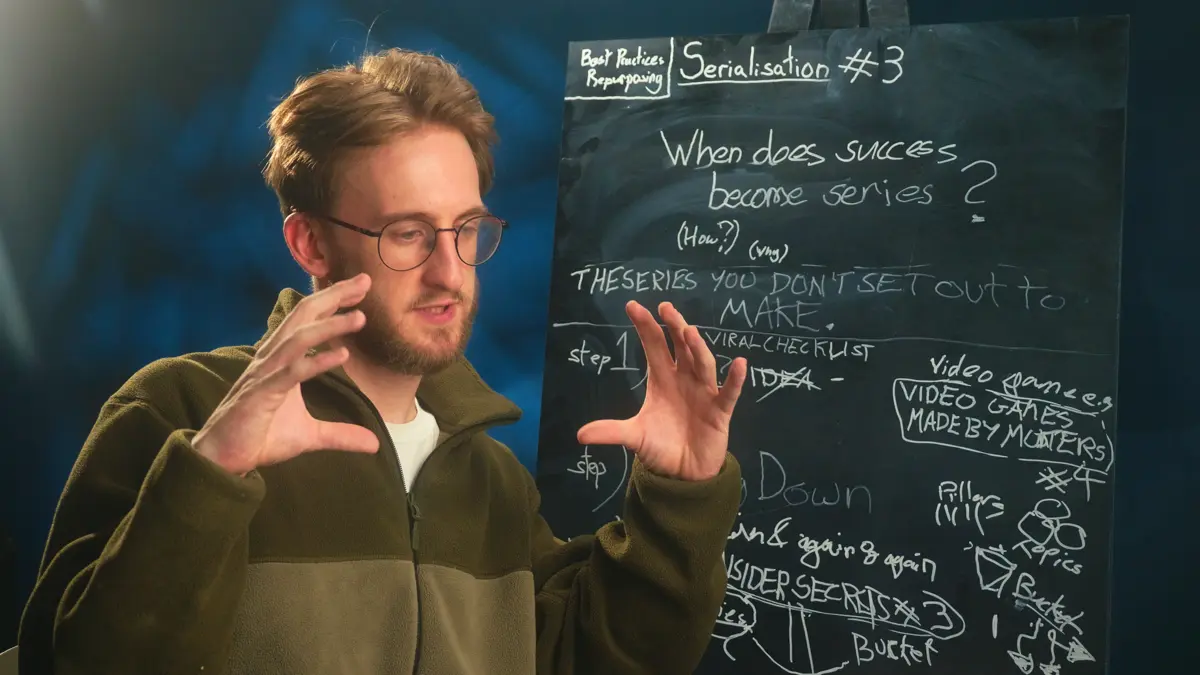 Best Practices
Repurposing
Serialisation #3
When does success
become series ?
(How?) (Why)
THE SERIES YOU DON'T SET OUT TO
MAKE.
step 1)
VIRAL CHECKLIST
IDEA -
Video games e.g
VIDEO GAMES
MADE BY
#4
step
Down
Pillars
& again & again
Topics
SECRETS #3
Bucket
Bucket